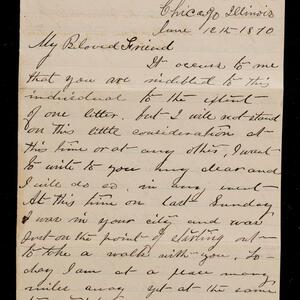 Chicago Illinois
June 12th 1870
My Beloved Friend
It occurs to me
that you are indebted to this
individual to the extent
of one letter, but I will not stand
on this little consideration at
this time or at any other, I want
to write to you my dear and
I will do so, in any event
At this time on last Sunday
I was in your city and was
just on the point of starting out
to take a walk with you. To-
day I am at a place many
miles away yet at the same